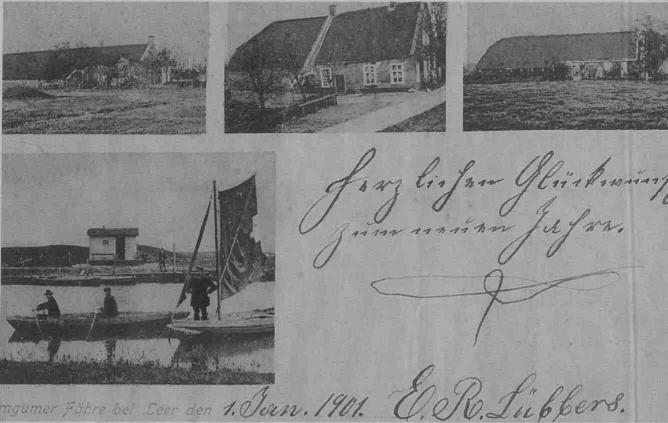 Herzlichen Glückwuns
zum neuen Jahre.
mgumer Fähre bei Leer den 1. Jan. 1901. E. R. Lübbers.